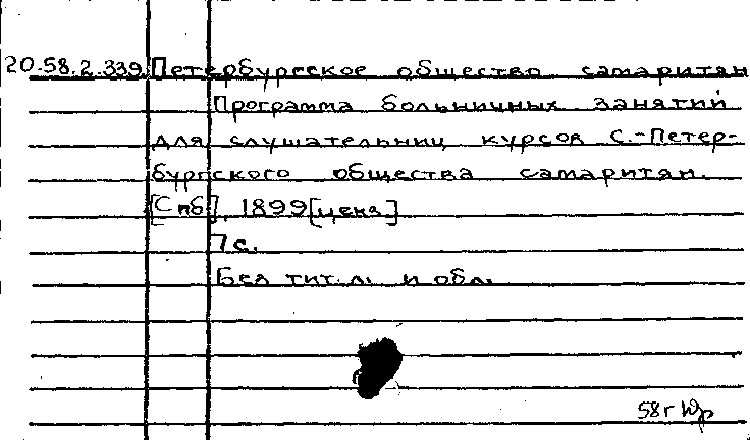 20.58.2.339 Петербургское общество самаритян
Программа больничных занятий
для слушательниц курсов С.-Петер-
бургского общества самаритян.
[Спб], 1899 [цена]
7 с.
Без тит. л. и обл.
58 г